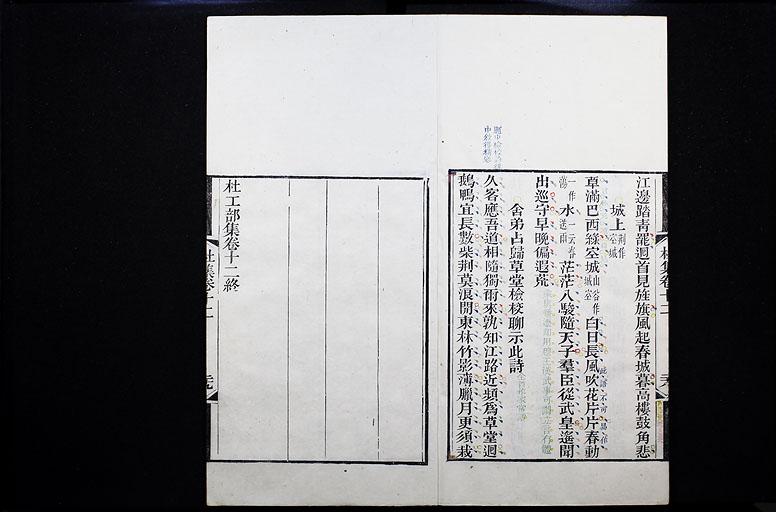 江邊踏青罷迴首見旌旗風起春城暮高樓鼓角悲
城上 荆作空城
草滿巴西綠空城 山谷作城空 白日長風吹花片片春動
一作蕩 水 一云春送雨 茫茫八駿隨天子羣臣從武皇遙聞
出巡守早晚徧遐荒
舍弟占歸草堂檢校聊示此詩
久客應吾道相隨獨爾來孰知江路近頻爲草堂迴
鵝鴨宜長數柴荆莫浪開東林竹影薄臘月更須栽
杜工部集卷十二終
杜集卷十二